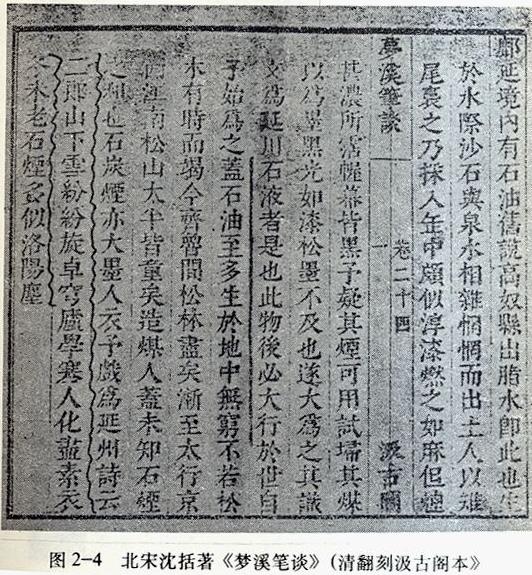 鄜延境內有石油舊說高奴縣出脂水即此也生
於水際沙石與泉水相雜惘惘而出土人以雉
尾裛之乃採入缶中頗似淳漆燃之如麻但煙
夢溪筆談 卷二十四 一 汲古閣
甚濃所霑幄幕皆黑予疑其煙可用試掃其煤
以爲墨黑光如漆松墨不及也遂大爲之其識
文爲延川石液者是也此物後必大行於世自
予始爲之蓋石油至多生於地中無窮不若松
木有時而竭今齊魯間松林盡矣漸至太行京
西江南松山太半皆童矣造煤人蓋未知石煙
之利也石炭煙亦大墨人衣予戲爲延州詩云
二郎山下雪紛紛旋卓穹廬學塞人化盡素衣
冬未老石煙多似洛陽塵
图 2-4 北宋沈括著《梦溪笔谈》(清翻刻汲古阁本》